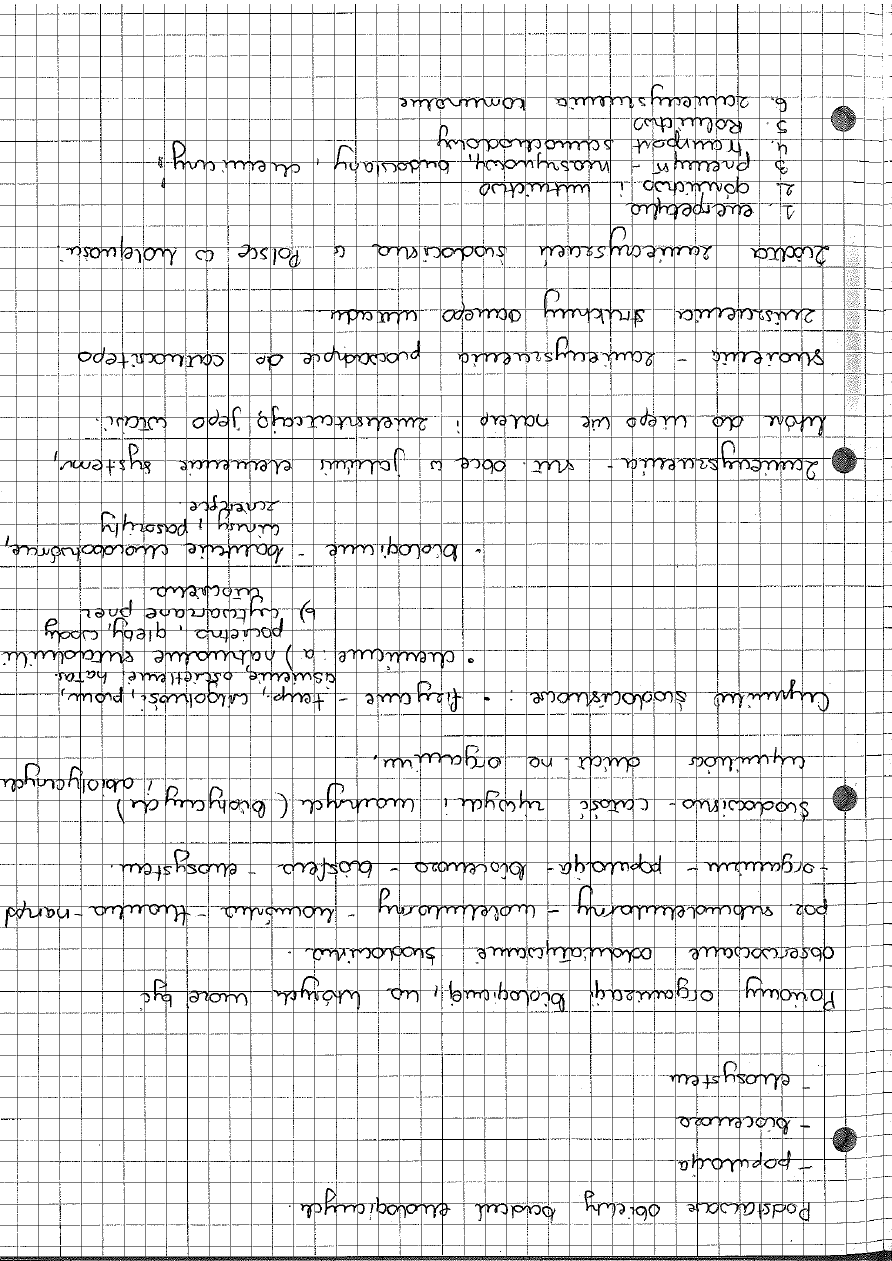 Podstawowe obiekty badań ekologicznych.
- populacja
- biocenoza
- ekosystem
Poziomy organizacji biologicznej, na których może być
obserwowane oddziaływanie środowiska.
poz. subkomórkowy - molekularny - komórka - tkanka - narząd
- organizm - populacja - biocenoza - biosfera - ekosystem.
Środowisko - całość żywych i martwych (biotycznych)
i abiotycznych
czynników dział. na organizm.
Czynniki środowiskowe: • fizyczne - temp., wilgotność, prom.,
ciśnienie, oświetlenie, hałas.
• chemiczne: a) naturalne składniki
powietrza, gleby, wody
b) wytwarzane przez
człowieka
• biologiczne - bakterie chorobotwórcze,
wirusy i pasożyty
zwierzęce.
Zanieczyszczenia - sub. obce w jakimś elemencie systemu,
które do niego nie należą i zniekształcają jego właśc.
skażenia - zanieczyszczenia prowadzące do całkowitego
zniszczenia struktury danego układu
Źródła zanieczyszczeń środowiska w Polsce w kolejności:
1. energetyka
2. górnictwo i hutnictwo
3. przemysł - maszynowy, budowlany, chemiczny!
4. transport samochodowy
5. Rolnictwo
6. zanieczyszczenia komunalne